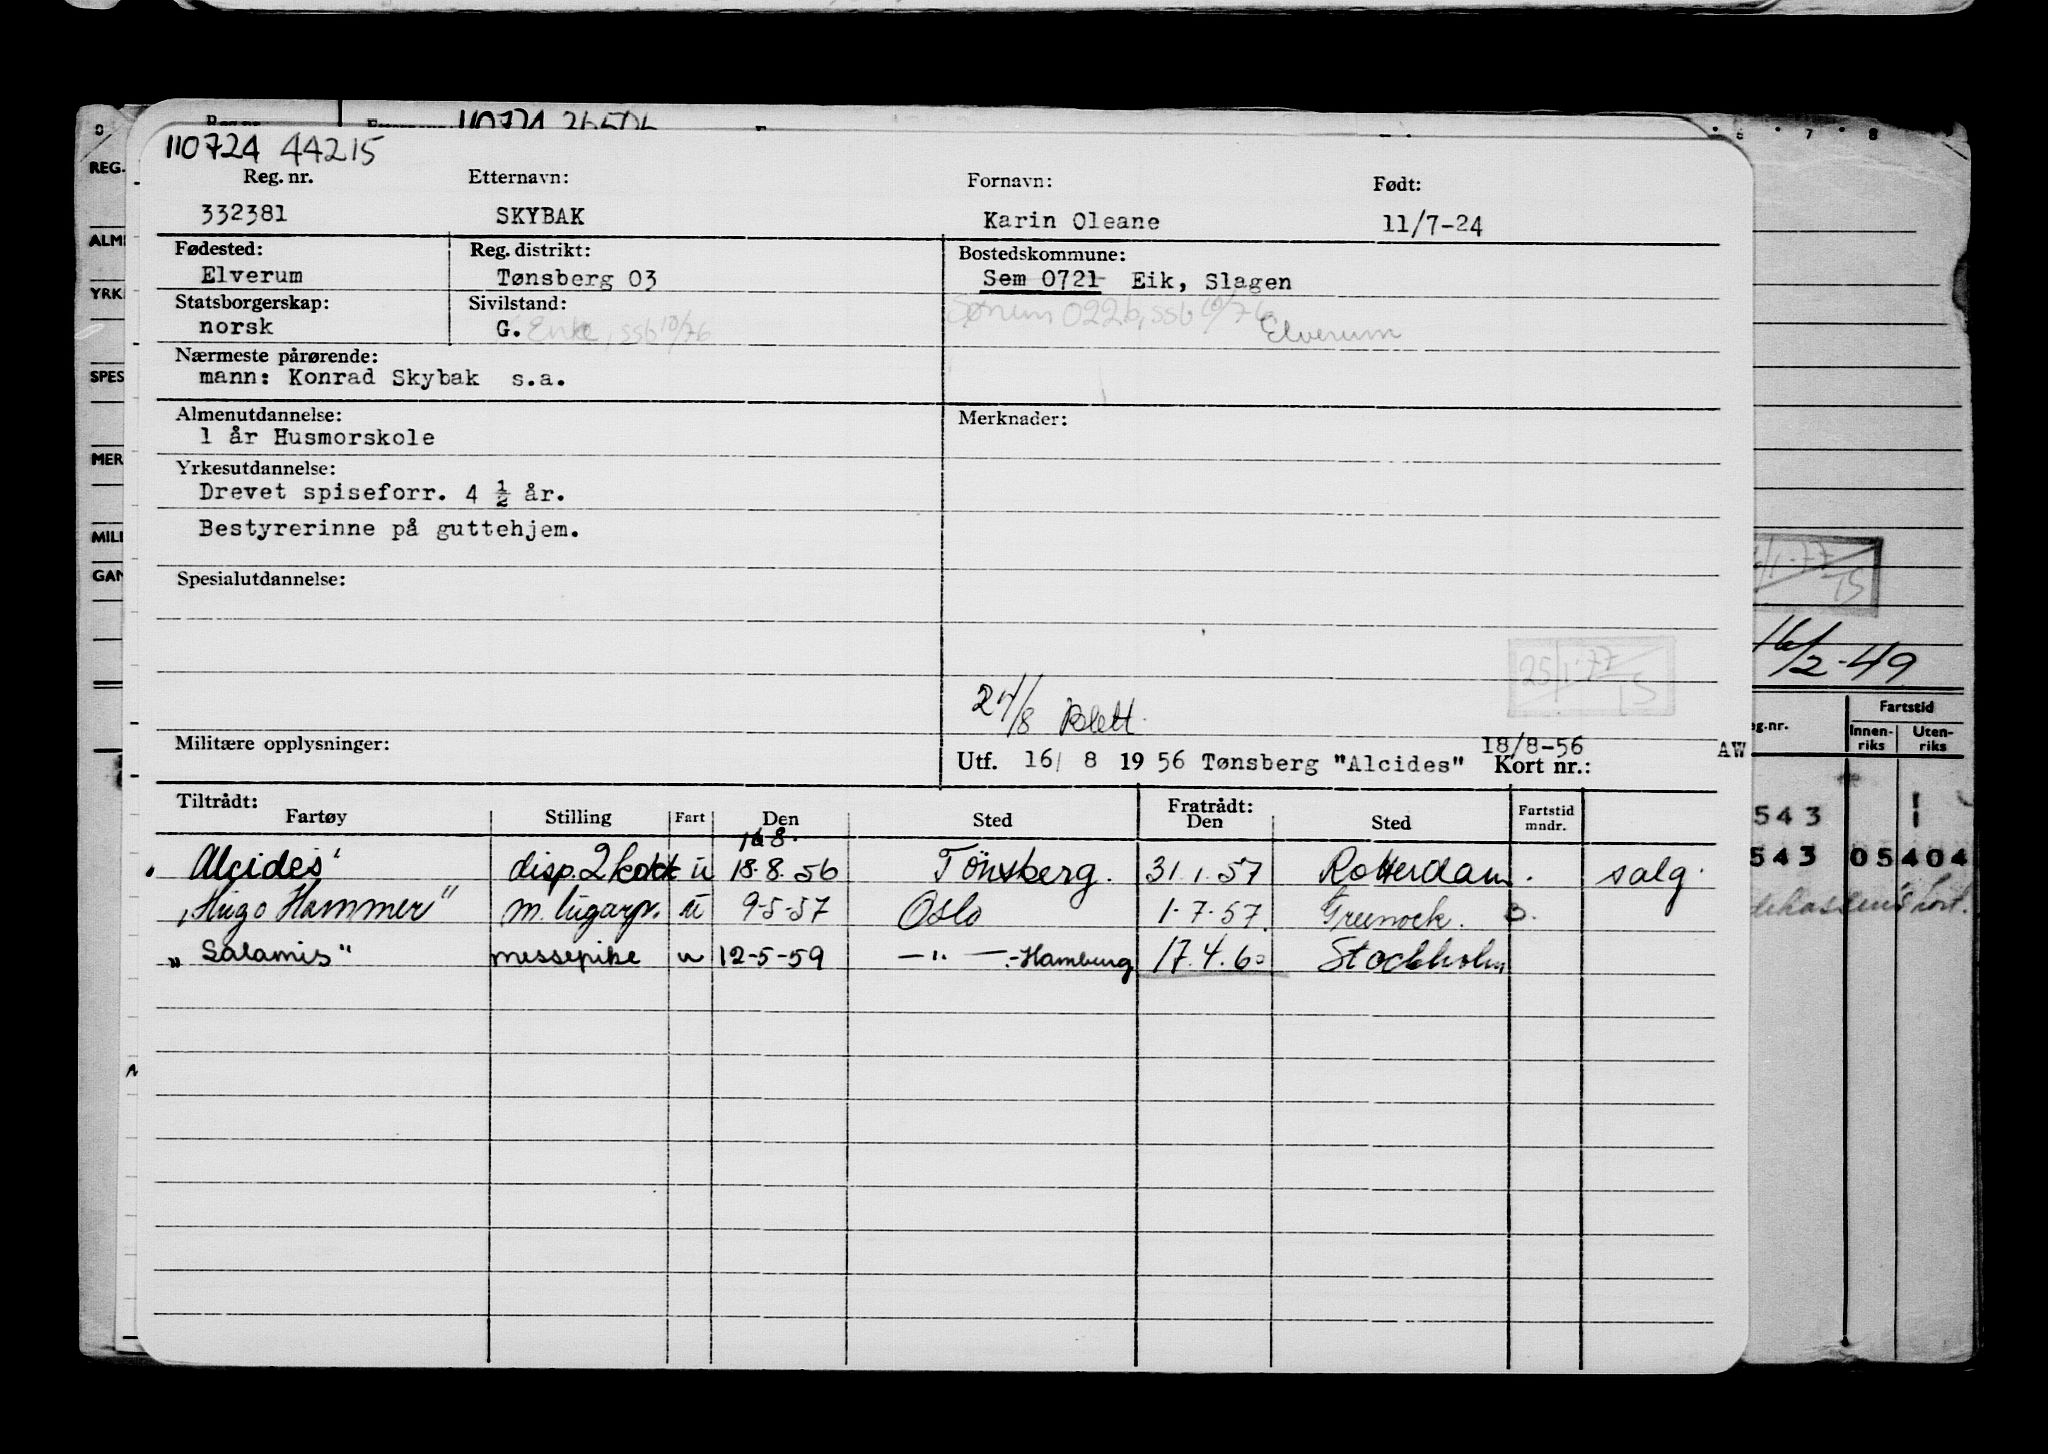 110724 44215
Reg. nr. Etternavn: Fornavn: Født:
332381 SKYBAK Karin Oleane 11/7-24
Fødested: Reg. distrikt: Bostedskommune:
Elverum Tønsberg 03 Sem 0721 Eik, Slagen
Statsborgerskap: Sivilstand: 0226, ssb 10/76
norsk G. Enke, ssb 10/76 Elverum
Nærmeste pårørende:
mann: Konrad Skybak s.a.
Almenutdannelse: Merknader:
1 år Husmorskole
Yrkesutdannelse:
Drevet spiseforr. 4 ½ år.
Bestyrerinne på guttehjem.
Spesialutdannelse:
25/1-77
Militære opplysninger:
18/8-56
Utf. 16/ 8 19 56 Tønsberg "Alcides" Kort nr.: AW
Tiltrådt: Fratrådt:
Fartøy Stilling Fart Den Sted Den Sted Fartstid mndr.
16.8.
Alcides" disp. 2 kokk u 18.8.56 Tönsberg. 31.1.57 Rotterdam. salg.
"Hugo Hammer" m. lugarp. u 9-5-57 Oslo 1.7.57 Greenock. B.
"Salamis" messepike u 12-5-59 — " — - Hamburg 17.4.60 Stockholm
REG.
YRK
SPES
MER
MILI
GAN
6 7 8
16/2-49
Fartstid
Innen-riks Uten-riks
543 1
543 05 404